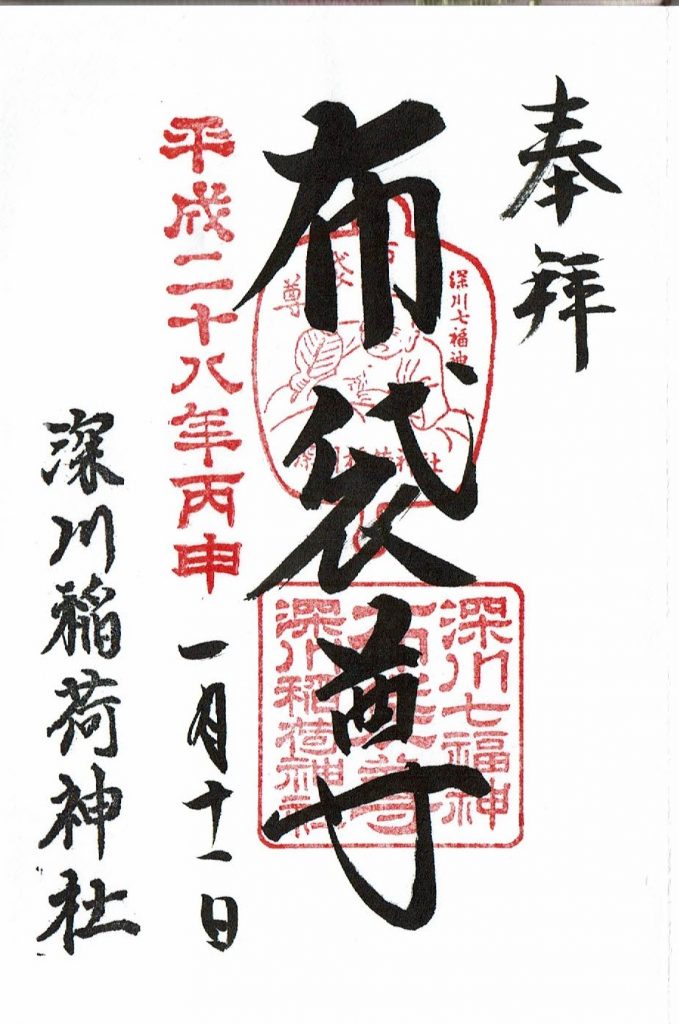 奉拝
布袋尊
深川七福神
尊
深川稲荷神社
深川七福神
布袋尊
深川稲荷神社
平成二十八年丙申
一月十一日
深川稲荷神社